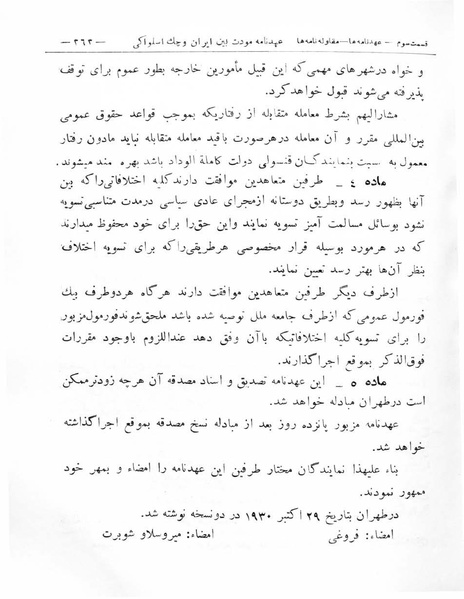 قسمت سوم – عهدنامه‌ها – مقاوله‌نامه‌ها عهدنامه مودت بین ایران و چك اسلواکی – ۳۶۳ –
و خواه درشهرهای مهمی که این قبیل مأمورین خارجه بطور عموم برای توقف
پذیرفته می‌شوند قبول خواهدکرد.
مشارالیهم بشرط معامله متقابله از رفتاریکه بموجب قواعد حقوق عمومی
بین‌المللی مقرر و آن معامله درهرصورت باقید معامله متقابله نباید مادون رفتار
معمول به نسبت بنمایندگان قنسولی دولت کاملة‌الوداد باشد بهره مند میشوند.
ماده ٤ – طرفین متعاهدین موافقت دارندکلیه اختلافاتی‌راکه بین
آنها بظهور رسد وبطریق دوستانه ازمجرای عادی سیاسی درمدت متناسبی‌تسویه
نشود بوسائل مسالمت آمیز تسویه نمایند واین حق‌را برای خود محفوظ میدارند
که در هرمورد بوسیله قرار مخصوصی هرطریقی‌راکه برای تسویه اختلاف
بنظر آن‌ها بهتر رسد تعیین نمایند.
ازطرف دیگر طرفین متعاهدین موافقت دارند هرگاه هردوطرف بیك
فورمول عمومی‌که ازطرف جامعه ملل توصیه شده باشد ملحق‌شوندفورمول‌مزبور
را برای تسویه‌کلیه اختلافاتیکه باآن وفق دهد عنداللزوم باوجود مقررات
فوق‌الذکر بموقع اجراگذارند.
ماده ٥ – این عهدنامه تصدیق و اسناد مصدقه آن هرچه زودترممکن
است درطهران مبادله خواهد شد.
عهدنامه مزبور پانزده روز بعد از مبادله نسخ مصدقه بموقع اجراگذاشته
خواهد شد.
بناء علیهذا نمایندگان مختار طرفین این عهدنامه را امضاء و بمهر خود
ممهور نمودند.
درطهران بتاریخ ۲۹ اکتبر ۱۹۳۰ در دونسخه نوشته شد.
امضاء: فروغی امضاء: میروسلاو شوبرت